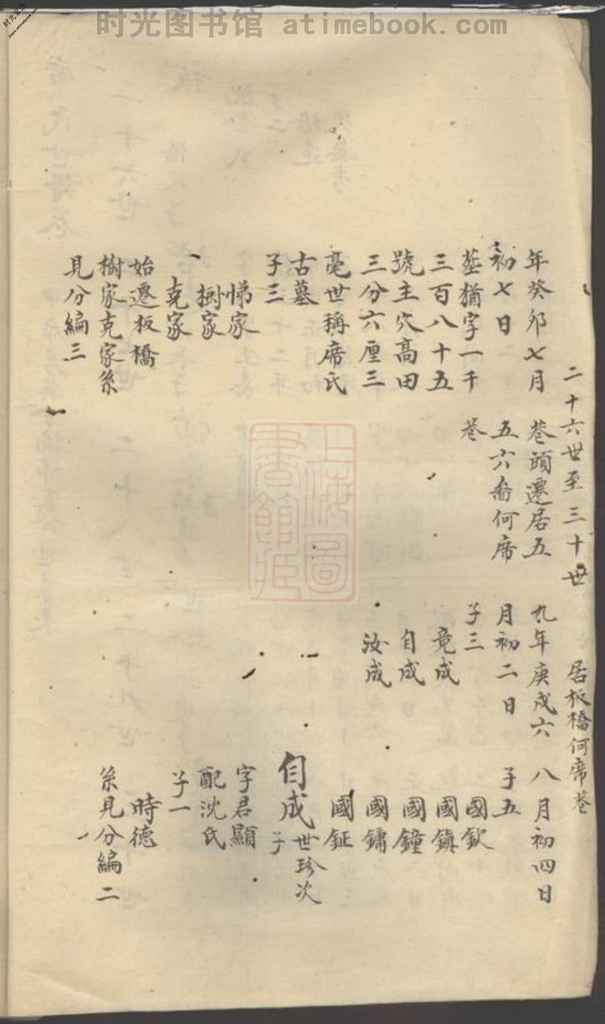 时光图书馆 atimebook.com
二十六世至三十世 居板橋何席巷
年癸卯七月
初七日
塟猶字一千
三百八十五
號主穴高田
三分六厘三
毫世稱席氏
古墓
子三
悌家
樹家
克家
始遷板橋
樹家克家系
見分編三
巷頭遷居五
五六畨何席
巷
九年庚戌六
月初二日
子三
竟成
自成
汝成
八月初四日
子五
國欽
國鎮
國鐘
國鏞
國鉦
自成 世珍次子
字君顯
配沈氏
子一
時德
系見分編二
上海圖書館藏